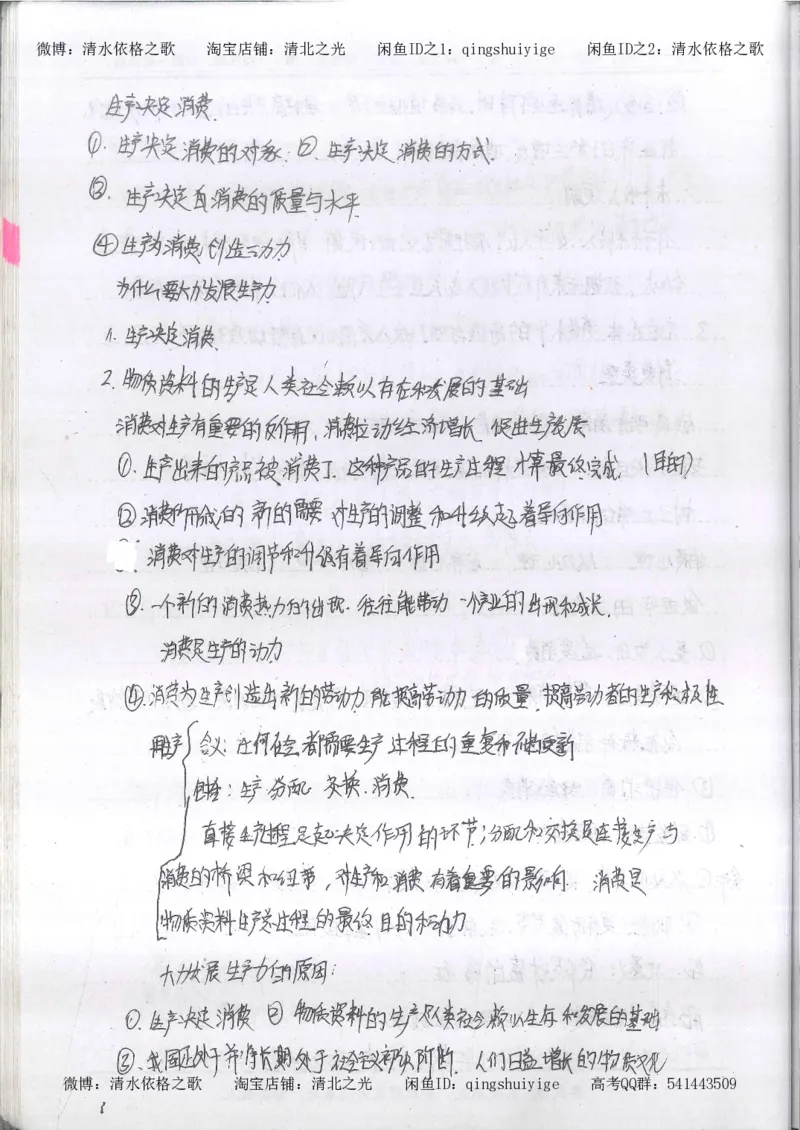 微博：清水依格之歌 淘宝店铺：清北之光 闲鱼ID之1：qingshuiyige 闲鱼ID之2：清水依格之歌
生产决定消费
①. 生产决定消费的对象. ②. 生产决定消费的方式.
③. 生产决定 消费的质量与水平
④生产为消费创造动力
为什么要大力发展生产力
1. 生产决定消费.
2. 物质资料的生产是人类社会赖以存在和发展的基础
消费对生产有重要的反作用, 消费拉动经济增长, 促进生产发展
①. 生产出来的产品被消费了, 这种产品的生产过程才算最终完成. (目的)
②消费所形成的新的需要 对生产的调整和升级起着导向作用
消费对生产的调节和升级有着导向作用
③. 一个新的消费热点的出现. 往往能带动一个产业的出现和成长.
消费是生产的动力
④. 消费为生产创造出新的劳动力 能提高劳动力的质量, 提高劳动者的生产积极性
再生产 含义: 任何社会都需要生产过程的重复和 更新
包含: 生产 分配 交换. 消费.
直接生产过程是起决定作用的环节; 分配和交换是连接生产与
消费的桥梁和纽带, 对生产和消费有着重要的影响 消费是
物质资料生产总过程的最终目的和动力
大力发展生产力的原因:
①. 生产决定消费 ② 物质资料的生产是人类社会赖以生存和发展的基础
③. 我国正处于并将长期处于社会主义初级阶段. 人们日益增长的物质文化
微博：清水依格之歌 淘宝店铺：清北之光 闲鱼ID：qingshuiyige 高考QQ群：541443509